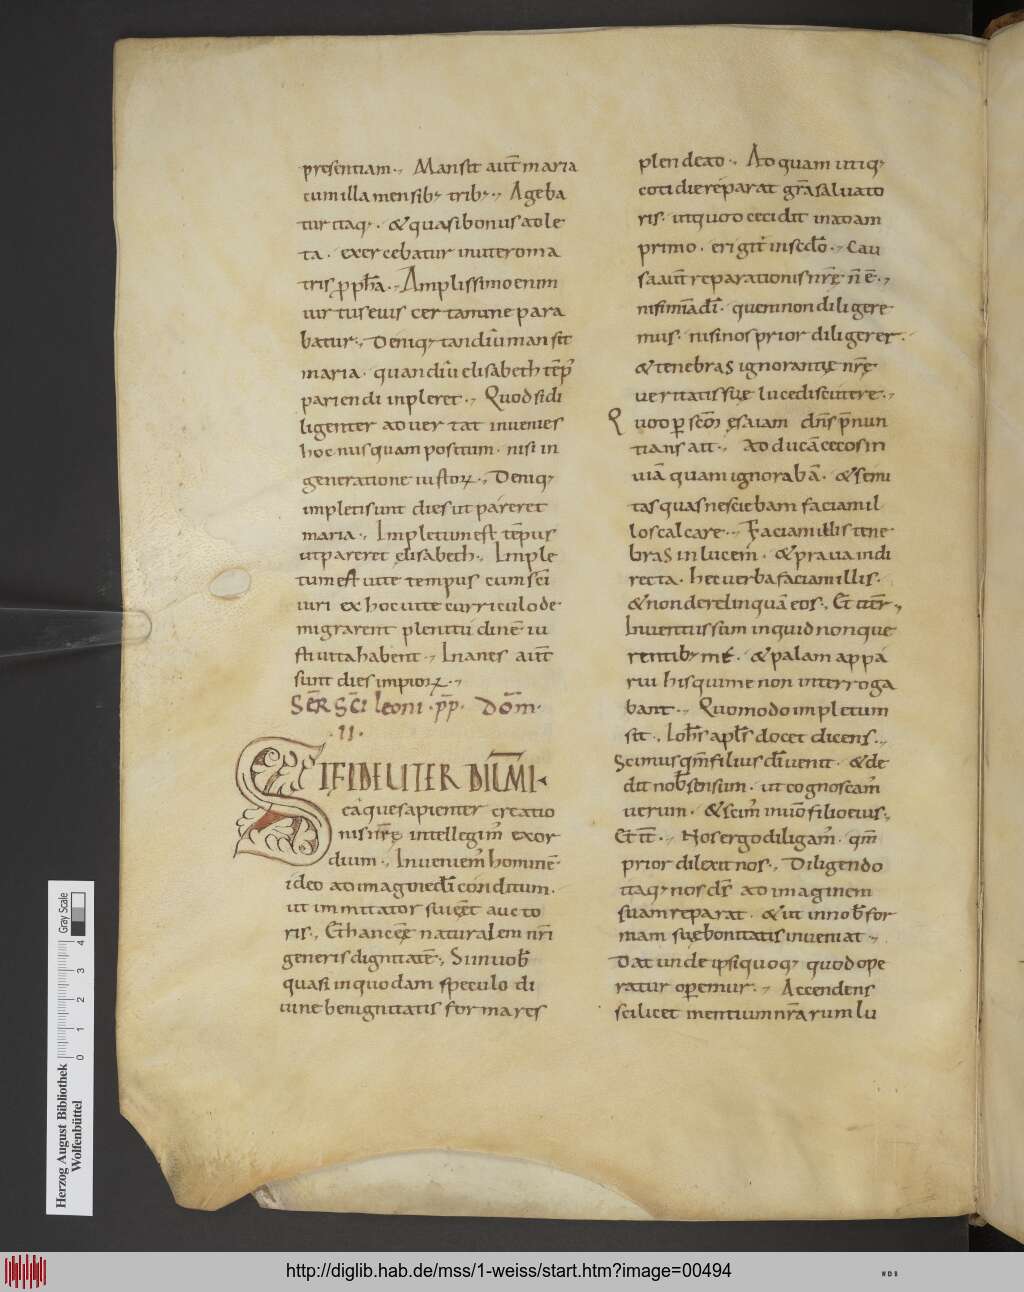 presentiam·, Mansit aut̄ maria
cum illa mensib; trib;·, Ageba
tur itaq;· & quasi bonus adle
ta· exercebatur in utero ma
tris ꝓph̄a·, Amplissimo enim
uirtus eius certamine para
batur·, Deniq; tandiu mansit
maria· quandiu elisabeth tēp᷒
pariendi inpleret·, Quod si di
ligenter aduertat inuenies
hoc nusquam positum· nisi in
generatione iustoꝝ·, Deniq;
impleti sunt dies ut pareret
maria·, Impletum est tēpus
ut pareret elisabeth·, Imple
tum est uite tempus cum sc̄i
uiri ex hoc uite curriculo de
migrarent plenitudinē iu
sti uita habent·, Inanes aut̄
sunt dies impioꝝ·,
SER̄ SC̄I leoni·pp̄· DŌM·
·II·
SI FIDELITER DIL̄MI·
eàque sapienter creatio
nis nr̄ę intellegim᷒ exor
dium·, Inueniem᷒ hominē·
ideo ad imaginē dī conditum·
ut imitator sui eēt aucto
ris·, Et hanc eē naturalem nr̄i
generis dignitatē·, Si in nob̄
quasi in quodam speculo di
uine benignitatis forma res
plendeat·, Ad quam utiq;
cotidie reparat gr̄a saluato
ris· ut quod cecidit in adam
primo· erigit᷒ in sec̄do·, Cau
sa aut̄ reparationis nr̄ę n̄ ē·,
nisi mīa dī· quem non diligere
mus· nisi nos prior diligeret·
& tenebras ignorantię nr̄ę
ueritatis suę luce discuteret·,
Quod ꝑ sc̄m ęsaiam dn̄s p̄nun
tians ait·, Adducā cecos in
uiā quam ignorabā· & semi
tas quas nesciebam faciam il
los calcare·, Faciam illis tene
bras in lucem· & praua in di
recta· hec uerba faciam illis·
& non derelinquā eos·, Et iter̄·,
Inuentus sum inquid non que
rentib; mé· & palam appa
rui his qui me non interroga
bant·, Quomodo impletum
sit·, Ioh̄s apls̄ docet dicens·,
Scimus qm̄ filius dī uenit· & de
dit nob̄ sensum· ut cognoscam᷒
uerum· & sim᷒ in uēo filio eius·,
Et it̄·, Nos ergo diligam᷒· qm̄
prior dilexit nos·, Diligendo
itaq; nos ds̄ ad imaginem
suam reparat· & ut in nob̄ for
mam suę bonitatis inueniat·,
Dat unde ipsi quoq; quod ope
ratur operemur·, Accendens
scilicet mentium nr̄arum lu
Herzog August Bibliothek
Wolfenbüttel
0 1 2 3 4
Gray Scale
http://diglib.hab.de/mss/1-weiss/start.htm?image=00494